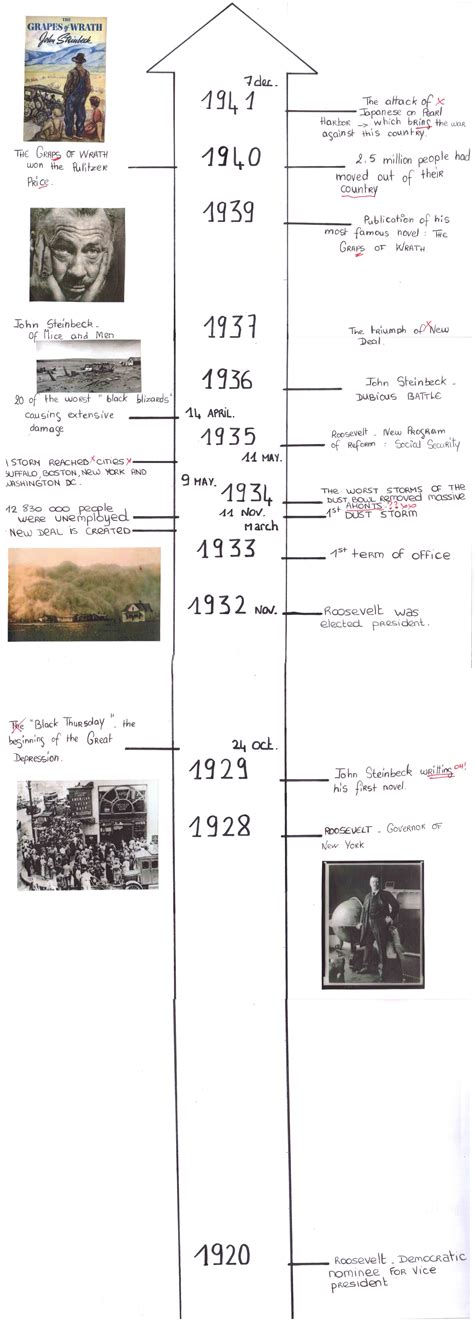 THE
GRAPES of WRATH
John Steinbeck
7 dec.
1941
The attack of
Japanese on Pearl
Harbor → which bring the war
against this country.
1940
THE GRAPS OF WRATH
won the Pulitzer
Price.
2.5 million people had
moved out of their
country
1939
Publication of his
most famous novel: THE
GRAPS OF WRATH
1937
John Steinbeck.
Of Mice and Men
The triumph of New
Deal.
1936
John Steinbeck -
DUBIOUS BATTLE
20 of the worst "black blizards"
causing extensive
damage
14 APRIL.
1935
Roosevelt. New Program
of Reform: Social Security
11 MAY.
1 STORM REACHED CITIES
BUFFALO, BOSTON, NEW YORK AND
WASHINGTON DC.
9 MAY.
1934
THE WORST STORMS OF THE
DUST BOWL REMOVED MASSIVE
AMONTS ??
12 830 000 people
were unemployed
11 NOV.
1st DUST STORM
NEW DEAL IS CREATED
March
1933
1st term of office
1932 NOV.
Roosevelt was
elected president.
The "Black Thursday". the
beginning of the Great
Depression.
24 oct.
1929
John Steinbeck writting
his first novel.
1928
ROOSEVELT - GOVERNOR OF
NEW YORK
1920
Roosevelt. Democratic
nominee for Vice
president